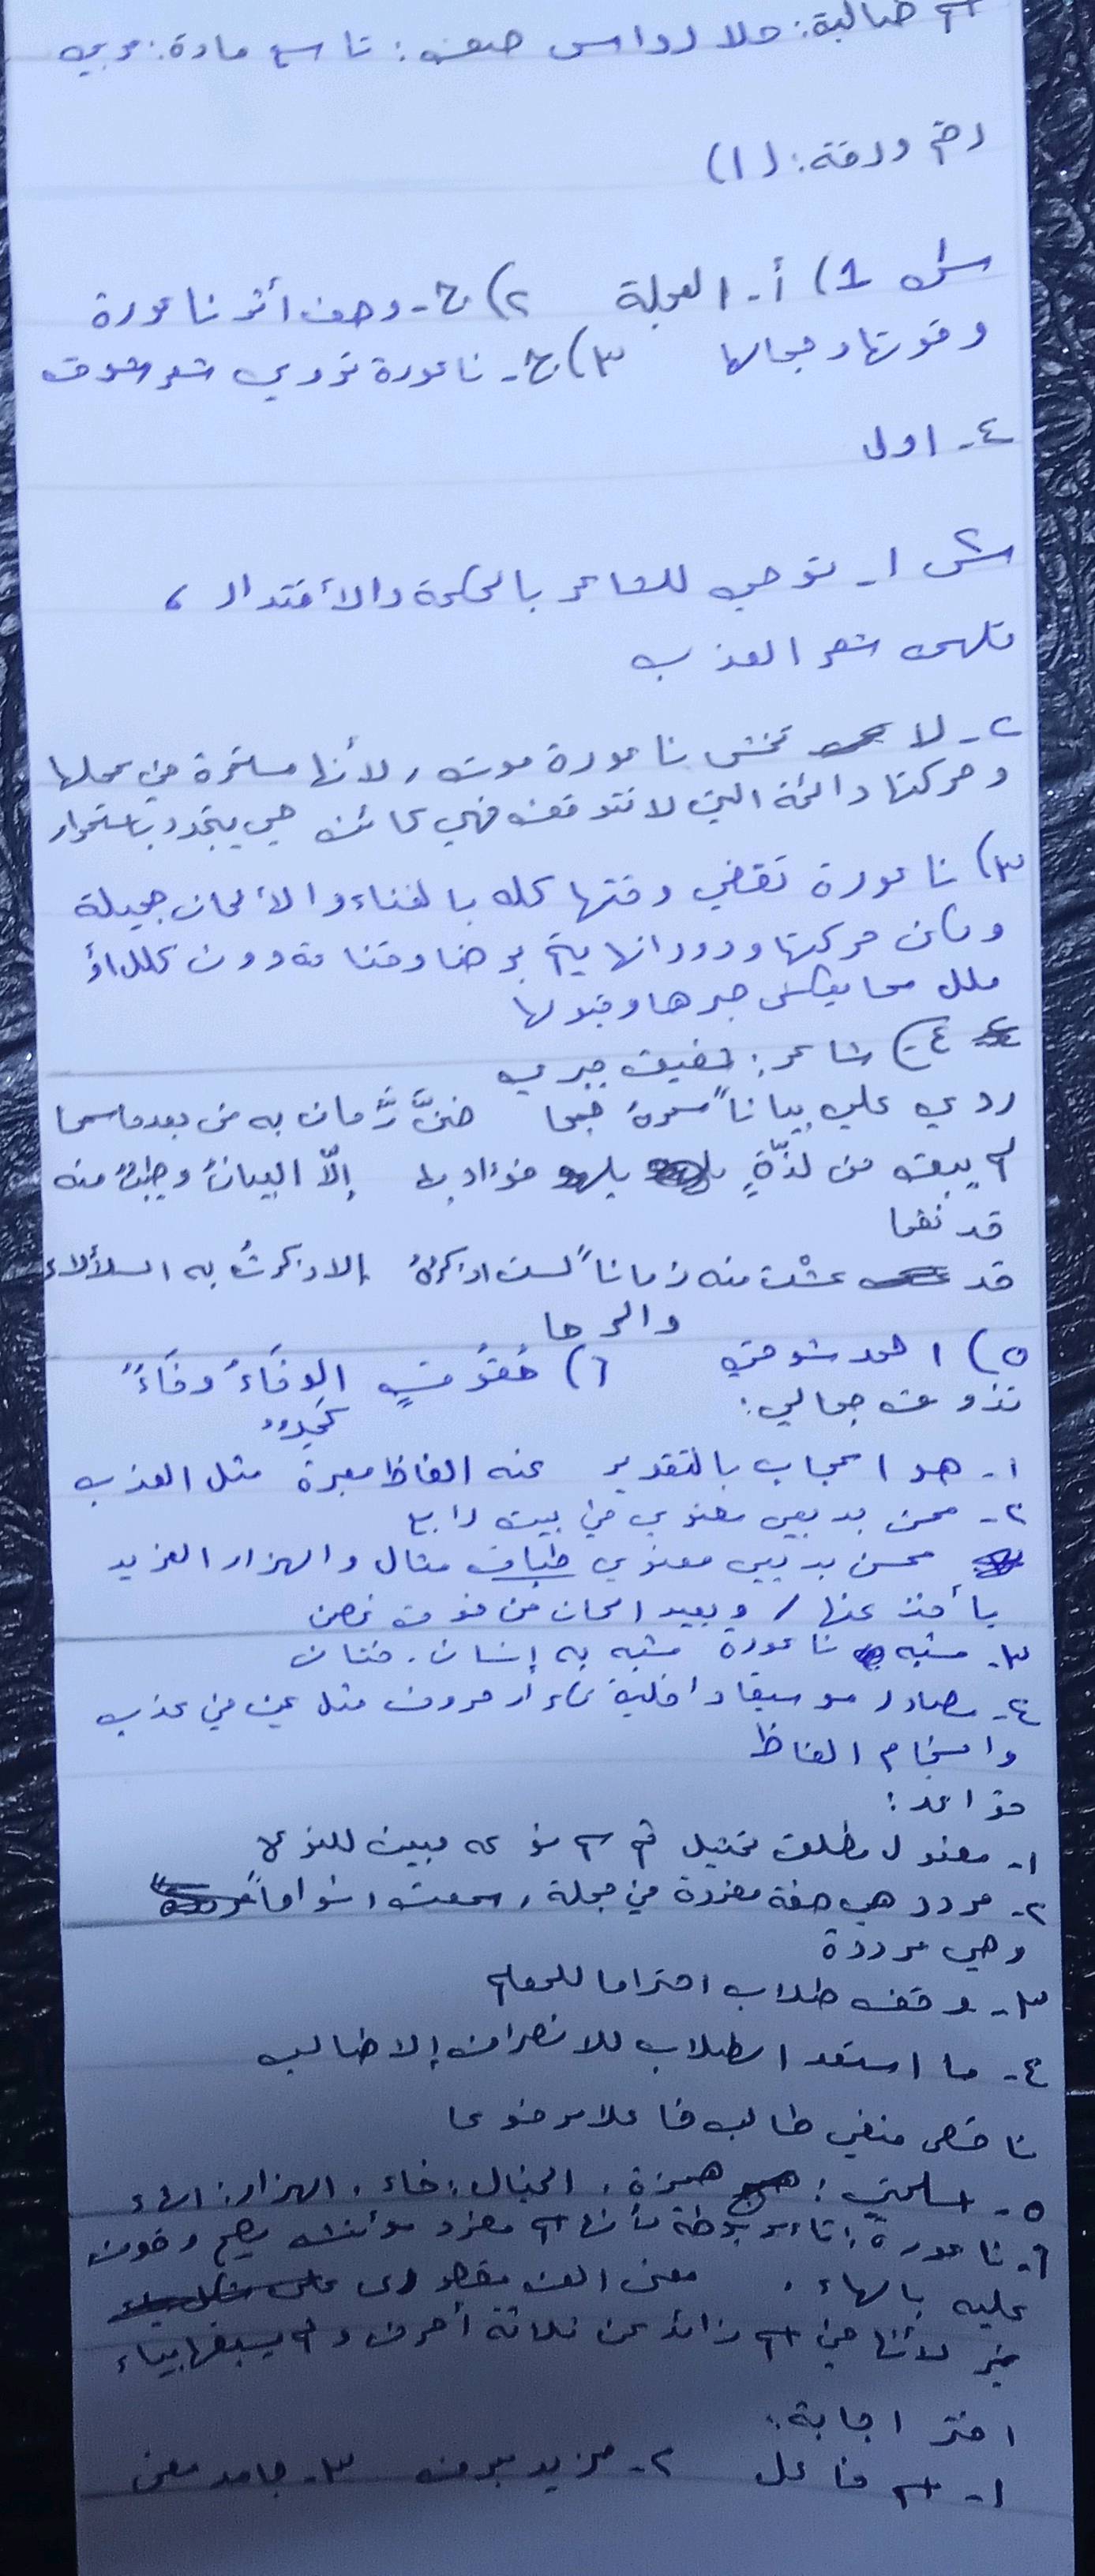 اسم طالبة: حلا رواس صف: تاسع مادة: عربي
رقم ورقة: (١)
س١ 1) أ- العجلة ٢) ج- وصف أثر ناعورة
وقوتها وجمالها ٣) ج- ناعورة تروي شعر شوق
٤- اولى
س٢ ١- توحي للشاعر بالحكمة والأقتدار ،
تلهمه شعر العذب
٢- لا تخش ناعورة موت , لأنها مستمرة في عملها
وحركتها دائمة التي لا تتوقف فهي كائن حي يتجدد باستمرار
٣) ناعورة تقضي وقتها كله بالغناء والألحان جميلة
وكان حركتها ودورانها يتم برضا وقناعة دون كلل أو
ملل مما يعكس صبرها وقبولها
٤-) شاعر: شفيق جبري
ردي علي بياناً سحرهُ جمحا ضنَّ زَّمان به من بعدما سمحا
لم يبقَ من لذّةٍ يلهو فؤاد بها إلّا البيانُ وطيبٌ منه
قد نفحا
قد عشْت منه زماناً لست اذكرهُ إلا ذكرتُ به السلألاء
والرحا
٥) احمد شوقي ٦) حُقُوقٍ الوفَاءُ وفَاءً
تذوق جمالي:
١- هو اعجاب بالتقدير عنه الفاظ معبرة مثل العذب
٢- محسن بديعي معنوي في بيت رابع
محسن بديعي معنوي طباق مثال والهزار الغريد
يأخذ عنها / ويعيد الحان من فوق غصن
٣- مشبه ناعورة مشبه به إنسان . فنان
٤- مصادر موسيقا داخلية تكرار حروف مثل عين في عذب
وانسجام الفاظ
قواعد :
١- مفعول مطلق تمثيل قم اسم نوعه مبين للنوع
٢- مردد هي صفة مفردة في جملة , سمعت اشواقاً
وهي مرددة
٣- وقف طلاب احتراما للمعلم
٤- ما استعد الطلاب للانصراف إلا طالب
ناقص منفي طالب فاعلا مرفوعا
٥- همزة . الخيال : خاء . الهزار : الهاء
٦- ناعورة : تاء مربوطة لأنها اسم مفرد مؤنث يصح وقوف
عليه بالهاء . معنى الف مقصورى
لأنها في اسم زائد عن ثلاثة أحرف ولم يسبقها بياء
اختر اجابة :
١- اسم فاعل ٢- مزيد بحرف ٣- جامد معنى